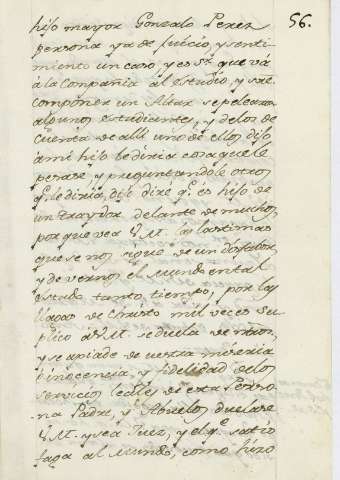 56.
hijo mayor Gonzalo Perez
persona ya de Juicio, y senti-
miento un caso, y es Sr. que vá
á la Compañia al estudio, y sre.
componer un Altar se pelearon
algunos estudiantes, y delos de
cuenta de alli uno de ellos dijo
á mi hijo le diria cosa que le
pesase, y preguntandole otros
q.e le diria, dijo diré q.e es hijo de
un traydor delante de muchos,
por que vea V. M. las lastimas
que se nos sigue de un
y de vernos el Mundo en tal
estado tanto tiempo, por las
llagas de Christo mil veces Su-
plico a V. M. se duela de ntros,
y se apiade de nuestra miseria
é inocencia, y fidelidad delos
servicios leales de esta Perso-
na Padre, y Abuelos, duelase
V. M. y sea Juez, y el q.e satis-
faga al Mundo, como hizo